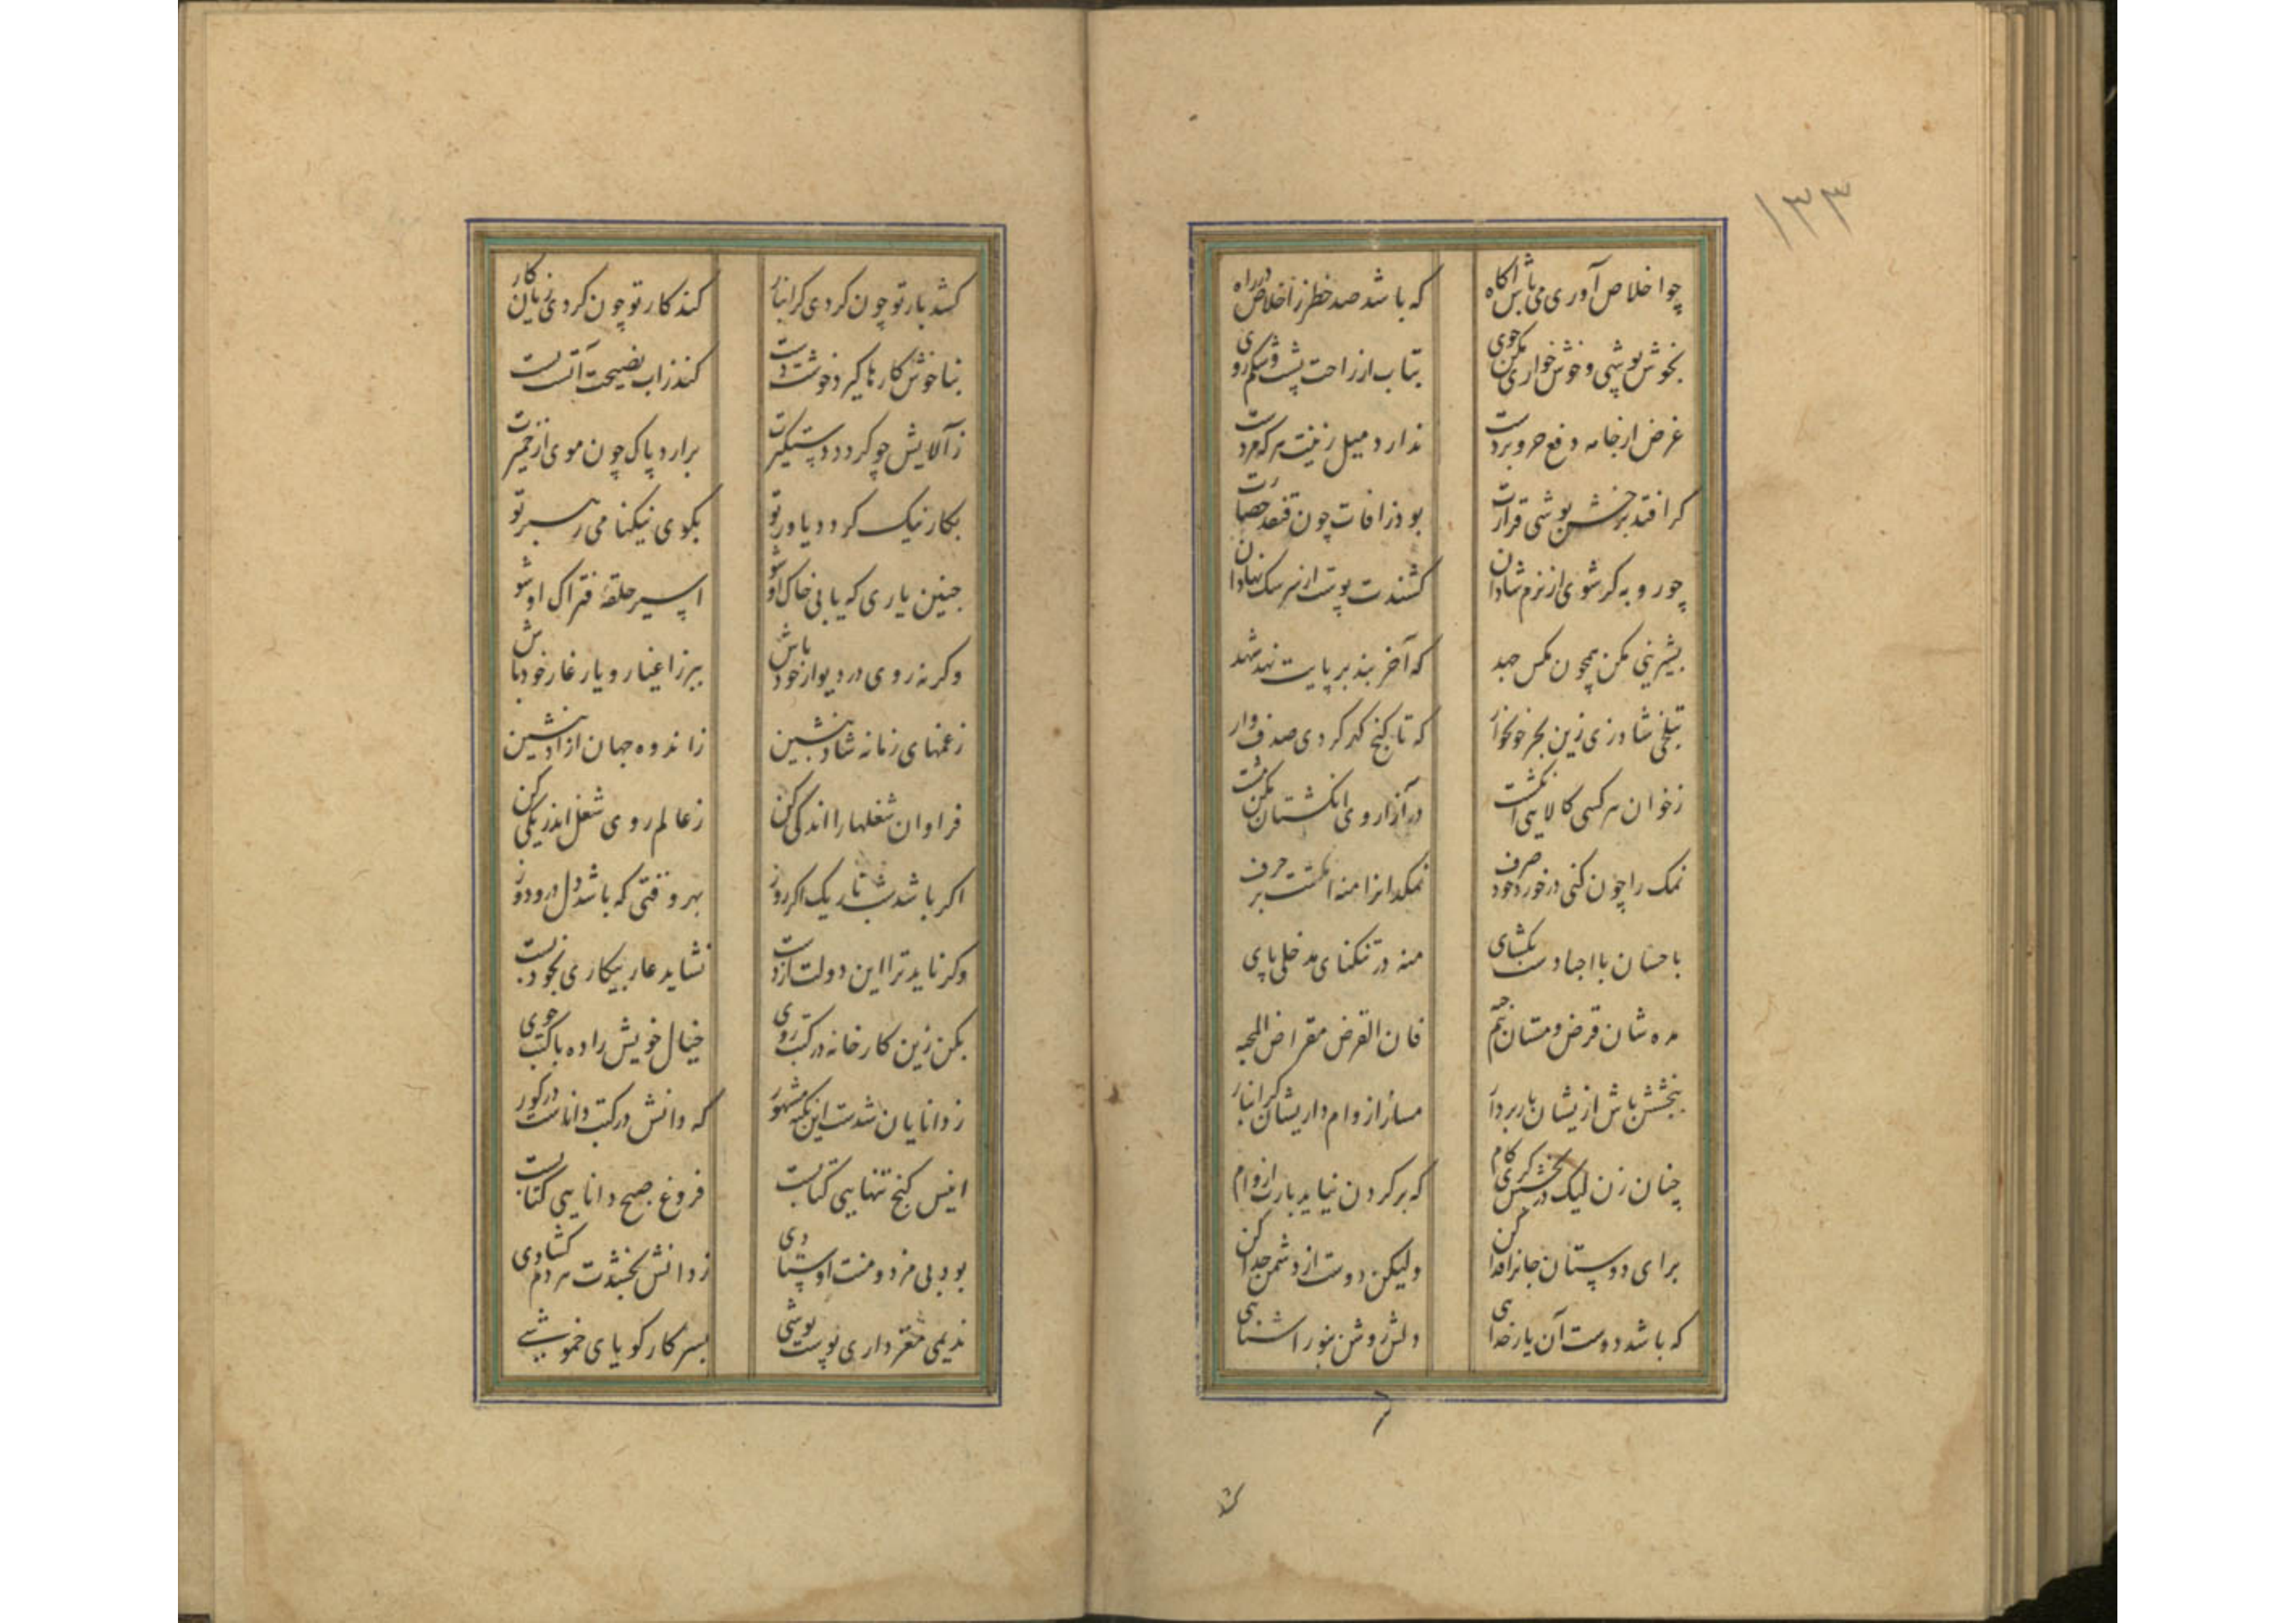 ۱۳۳
چو اخلاص آوری می باش آکاه که باشد صد خطر ز اخلاص در راه
بخوش پوشی و خوش خواری مکن خوی بتاب از راحت پشت و شکم روی
غرض از جامه دفع حر و بردست ندارد میل زینت هر که مردست
کر افتد بر خشن پوشی قرارت بود ز افات چون قنفذ حصارت
چو روبه کر شوی از نرم شادان کشندت پوست از سر سک نهادان
بشیرینی مکن همچون مکس جهد که آخر بند بر پایت نهد شهد
بتلخی شاد زی زین بحر خونخوار که تا کنج کهر کردی صدف وار
ز خوان هر کسی کالایی انکشت در آزار وی انکشتان مکن مشت
نمک را چون کنی در خورد خود صرف نمکدانرا منه انکشت بر حرف
باحسان با احبا دست بکشای منه در تنکنای مدخلی پای
مده شان قرض و مستان نیم حبه فان القرض مقراض المحبه
ببخشش باش ازیشان بار بردار مساز از وام داریشان کرانبار
چنان زن لیک در بخشش کری کام که بر کردن نیاید بارت از وام
برای دوستان جانرا فدا کن ولیکن دوست از دشمن جدا کن
که باشد دوست آن یار خدایی دلش روشن بنور اشنایی
کشد بار تو چون کردی کرانبار کند کار تو چون کردی زیان کار
بناخوش کارها کیرد خوشت دست کند ز اب نصیحت آتشت پست
ز آلایش چو کردد دستکیرت برارد پاک چون موی از خمیرت
بکار نیک کردد یاور تو بکوی نیکنامی رهبر تو
چنین یاری که یابی خاک او شو اسیر حلقهٔ فتراک او شو
وکرنه روی در دیوار خود باش ببر ز اغیار و یار غار خود باش
ز غمهای زمانه شاد بنشین ز اندوه جهان ازاد بنشین
فراوان شغلها را اندکی کن ز عالم روی شغل اندر یکی کن
اکر باشد شب تاریک اکر روز بهر وقتی که باشد دل درو دوز
وکر ناید ترا این دولت از دست نشاید عار بیکاری بخود بست
بکن زین کارخانه در کتب روی خیال خویش را ده با کتب خوی
ز دانایان شدست این نکته مشهور که دانش در کتب داناست در کور
انیس کنج تنهایی کتابست فروغ صبح دانایی کتابست
بود بی مزد و منت اوستادی ز دانش بخشدت هر دم کشادی
ندیمی مغز داری پوست پوشی بسر کار کویای خموشی
کشد